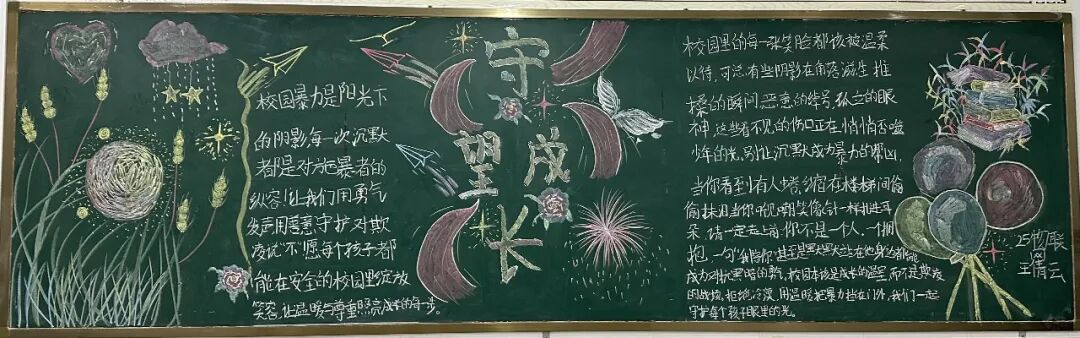 校园暴力是阳光下
的阴影,每一次沉默
都是对施暴者的
纵容,让我们用勇气
发声用善意守护对欺
凌说"不"愿每个孩子都
能在安全的校园里绽放
笑容,让温暖与尊重照亮成长的每一步。
守
望
成
长
校园里的每一张笑脸都该被温柔
以待,可总有些阴影在角落滋生推
搡的瞬间恶意的绰号,孤立的眼
神,这些看不见的伤口正在悄悄吞噬
少年的光,别让沉默成为暴力的帮凶,
当你看到有人蜷缩在楼梯间偷
偷抹泪当你听见嘲笑像针一样扎进耳
朵,请一定走上前你不是一个人,一个拥
抱,一句"我陪你"甚至是默默站在他身边都能
成为对抗黑暗的
校园本该是成长的温室,而不是
的战场,拒绝冷漠,用温暖把暴力挡在门外,我们一起
守护每个孩子眼里的光。
25物联
王倩云